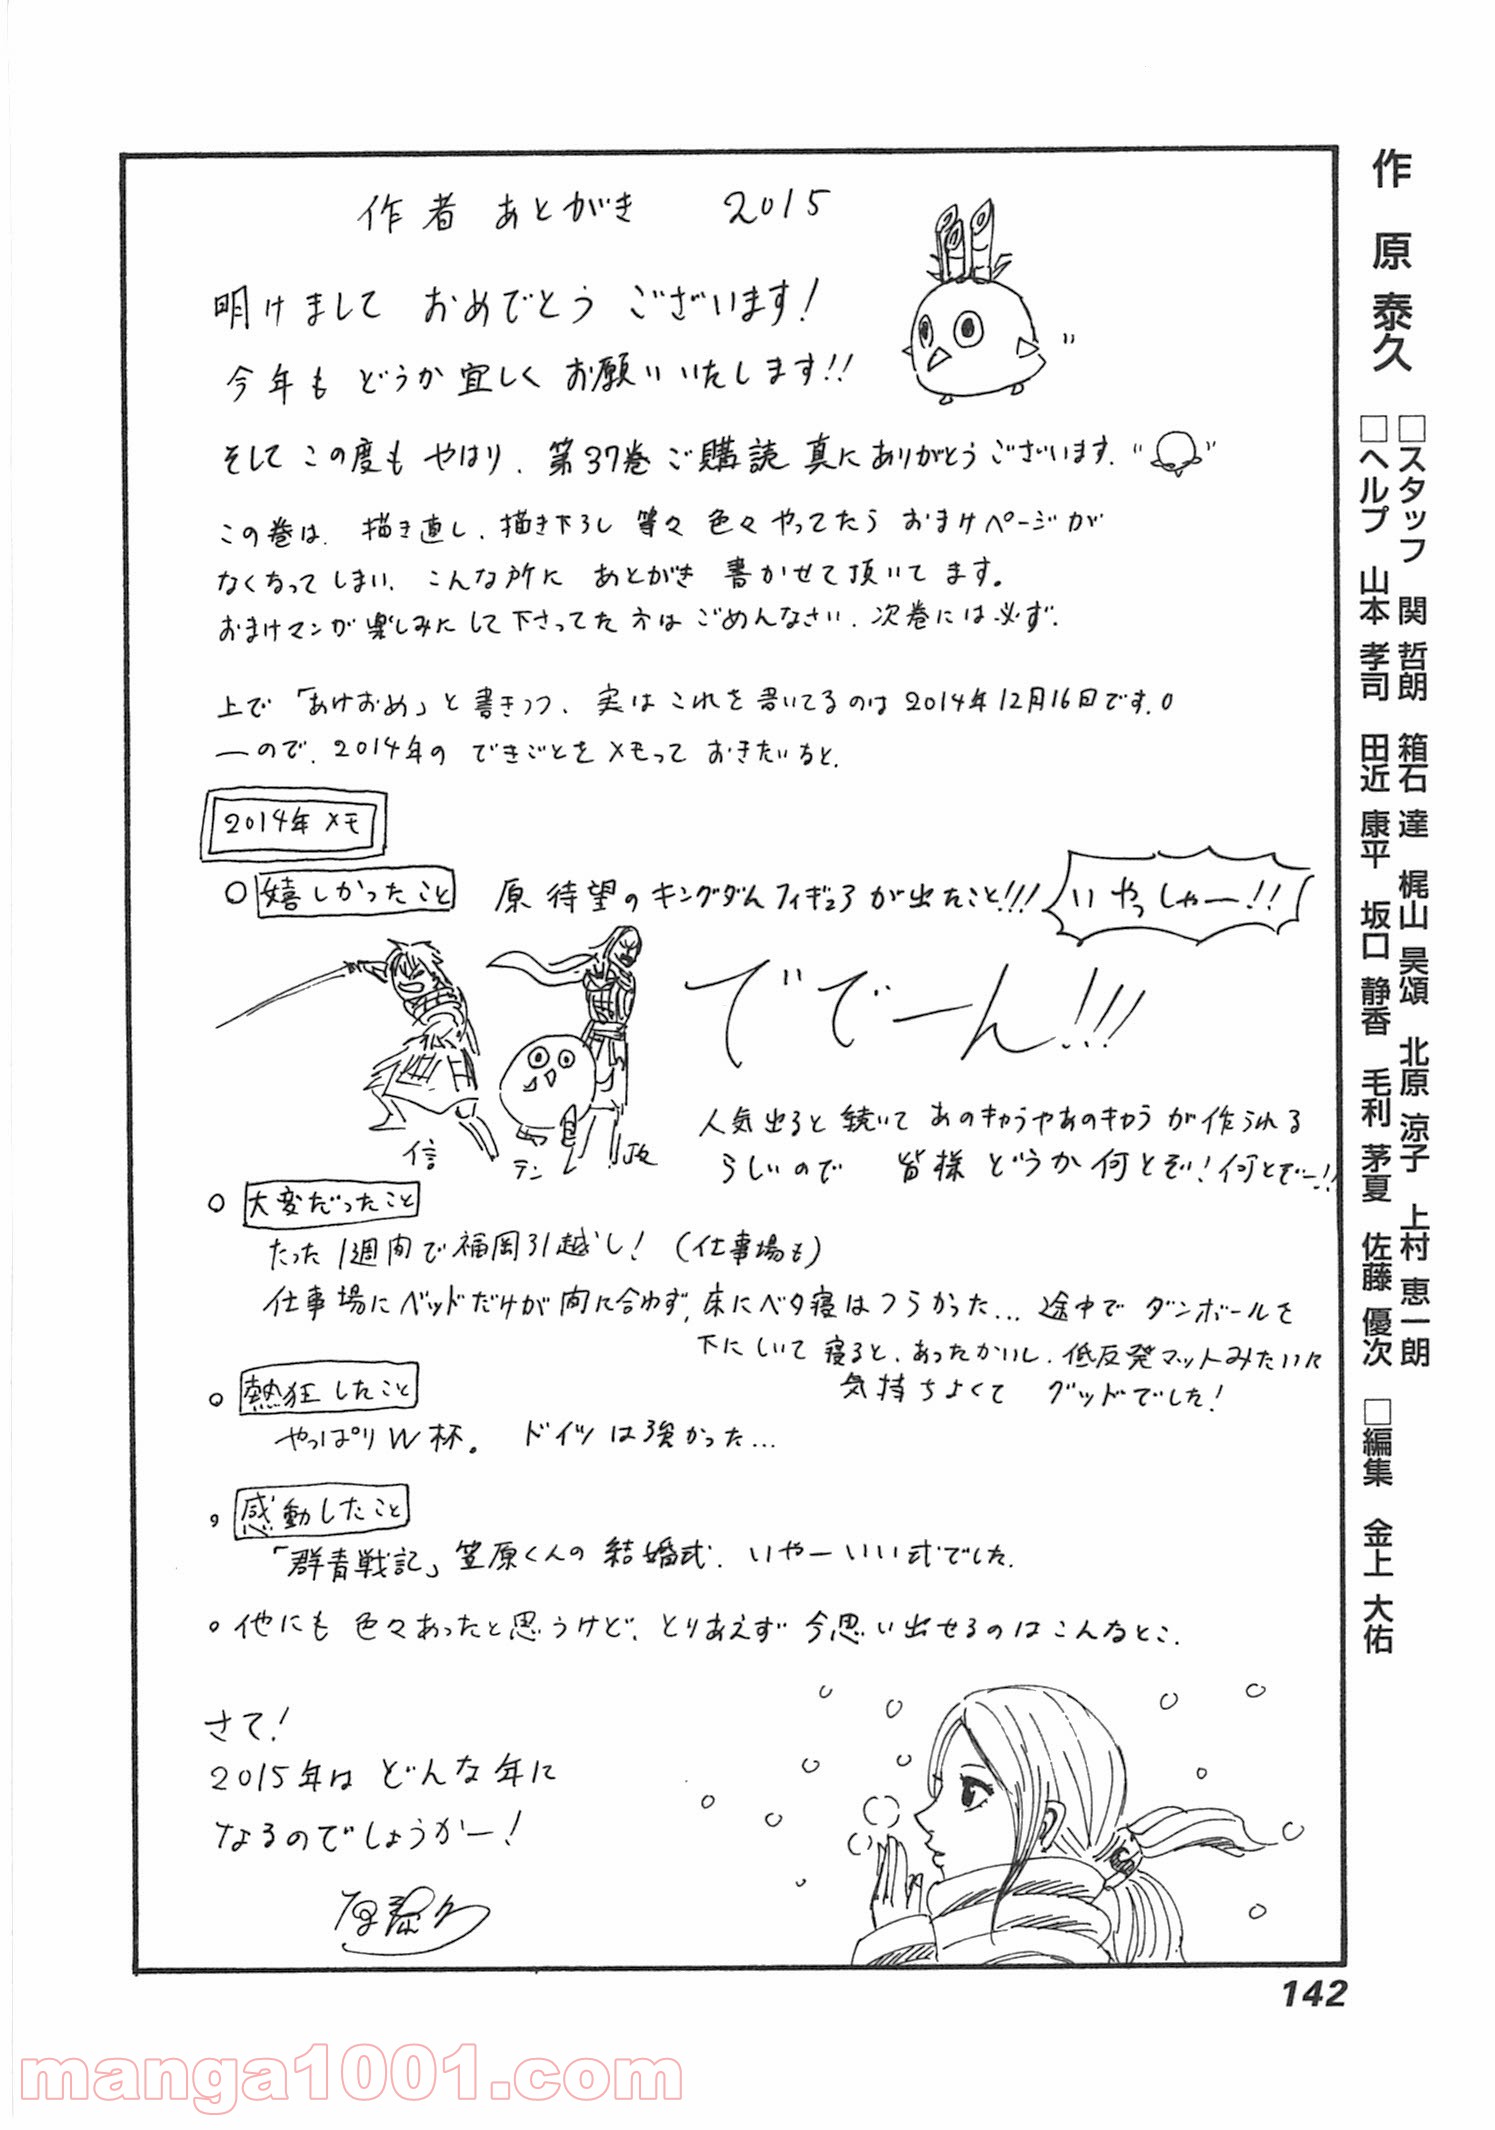 作者 あとがき 2015
明けまして おめでとう ございます!
今年も どうか宜しく お願いいたします!!
そして この度も やはり、第37巻 ご購読 真に ありがとうございます.
この巻は、描き直し、描き下ろし 等々 色々 やってたら おまけページが
なくなって しまい、こんな所に あとがき 書かせて頂いてます。
おまけマンガ楽しみにして下さってた方は ごめんなさい、次巻には必ず.
上で「あけおめ」と書きつつ、実は これを書いてるのは 2014年12月16日です.
ーので、2014年の できごとを メモって おきたいると.
2014年メモ
○ 嬉しかったこと 原 待望の キングダム フィギュア が 出たこと!!!
いやっしゃー!!
ででーん!!!
信
テン
政
人気出ると 続いて あのキャラやあのキャラ が 作られる
らしいので 皆様 どうか 何とぞ! 何とぞー!!
○ 大変だったこと
たった 1週間で 福岡引越し! (仕事場も)
仕事場に ベッドだけが 間に合わず, 床にベタ寝は つらかった… 途中で ダンボールを
下に しいて 寝ると、あったかいし、低反発マットみたいに
気持ちよくて グッドでした!
○ 熱狂したこと
やっぱりW杯。 ドイツは強かった…
○ 感動したこと
「群青戦記」笠原くんの 結婚式. いやーいい式でした.
○ 他にも 色々あったと思うけど、とりあえず 今思い出せるのは こんなとこ.
さて!
2015年は どんな年に
なるのでしょうかー!
原泰久
作 原 泰久
□スタッフ 関 哲朗 箱石 達 梶山 昊頌 北原 涼子 上村 恵一朗
□ヘルプ 山本 孝司 田近 康平 坂口 静香 毛利 茅夏 佐藤 優次 □編集 金上 大佑
142
manga1001.com